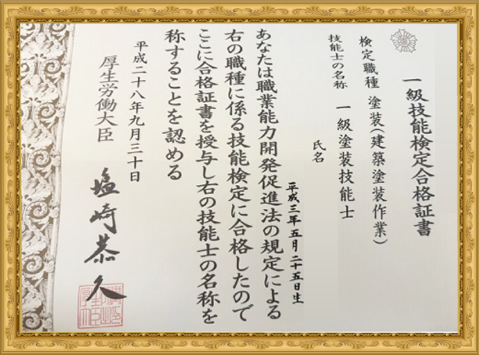 一級技能検定合格証書
検定職種 塗装(建築塗装作業)
技能士の名称 一級塗装技能士
氏名
平成三年五月二十五日生
あなたは職業能力開発促進法の規定による
右の職種に係る技能検定に合格したので
ここに合格証書を授与し右の技能士の名称を
称することを認める
平成二十八年九月三十日
厚生労働大臣 塩崎恭久